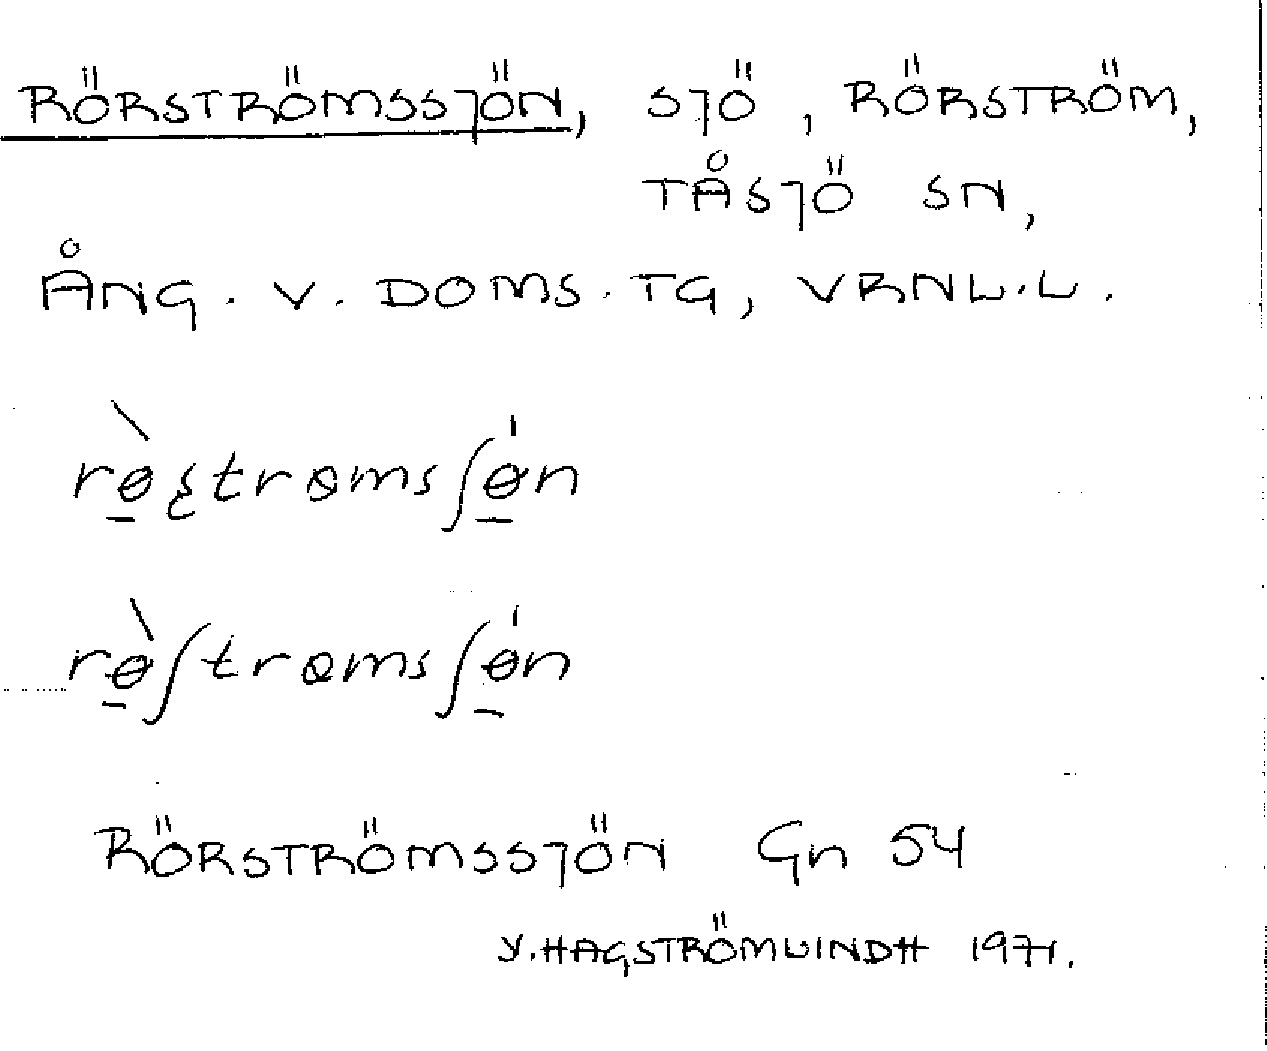 RÖRSTRÖMSSJÖN, SJÖ, RÖRSTRÖM,
TÅSJÖ SN,
ÅNG. V. DOMS. TG, VRNL.L.
rɵ̠̀ʂtrɵmsʃɵ̠́n
rɵ̠̀ʃtrɵmsʃɵ̠́n
RÖRSTRÖMSSJÖN Gn 54
Y. HAGSTRÖMLINDH 1971.